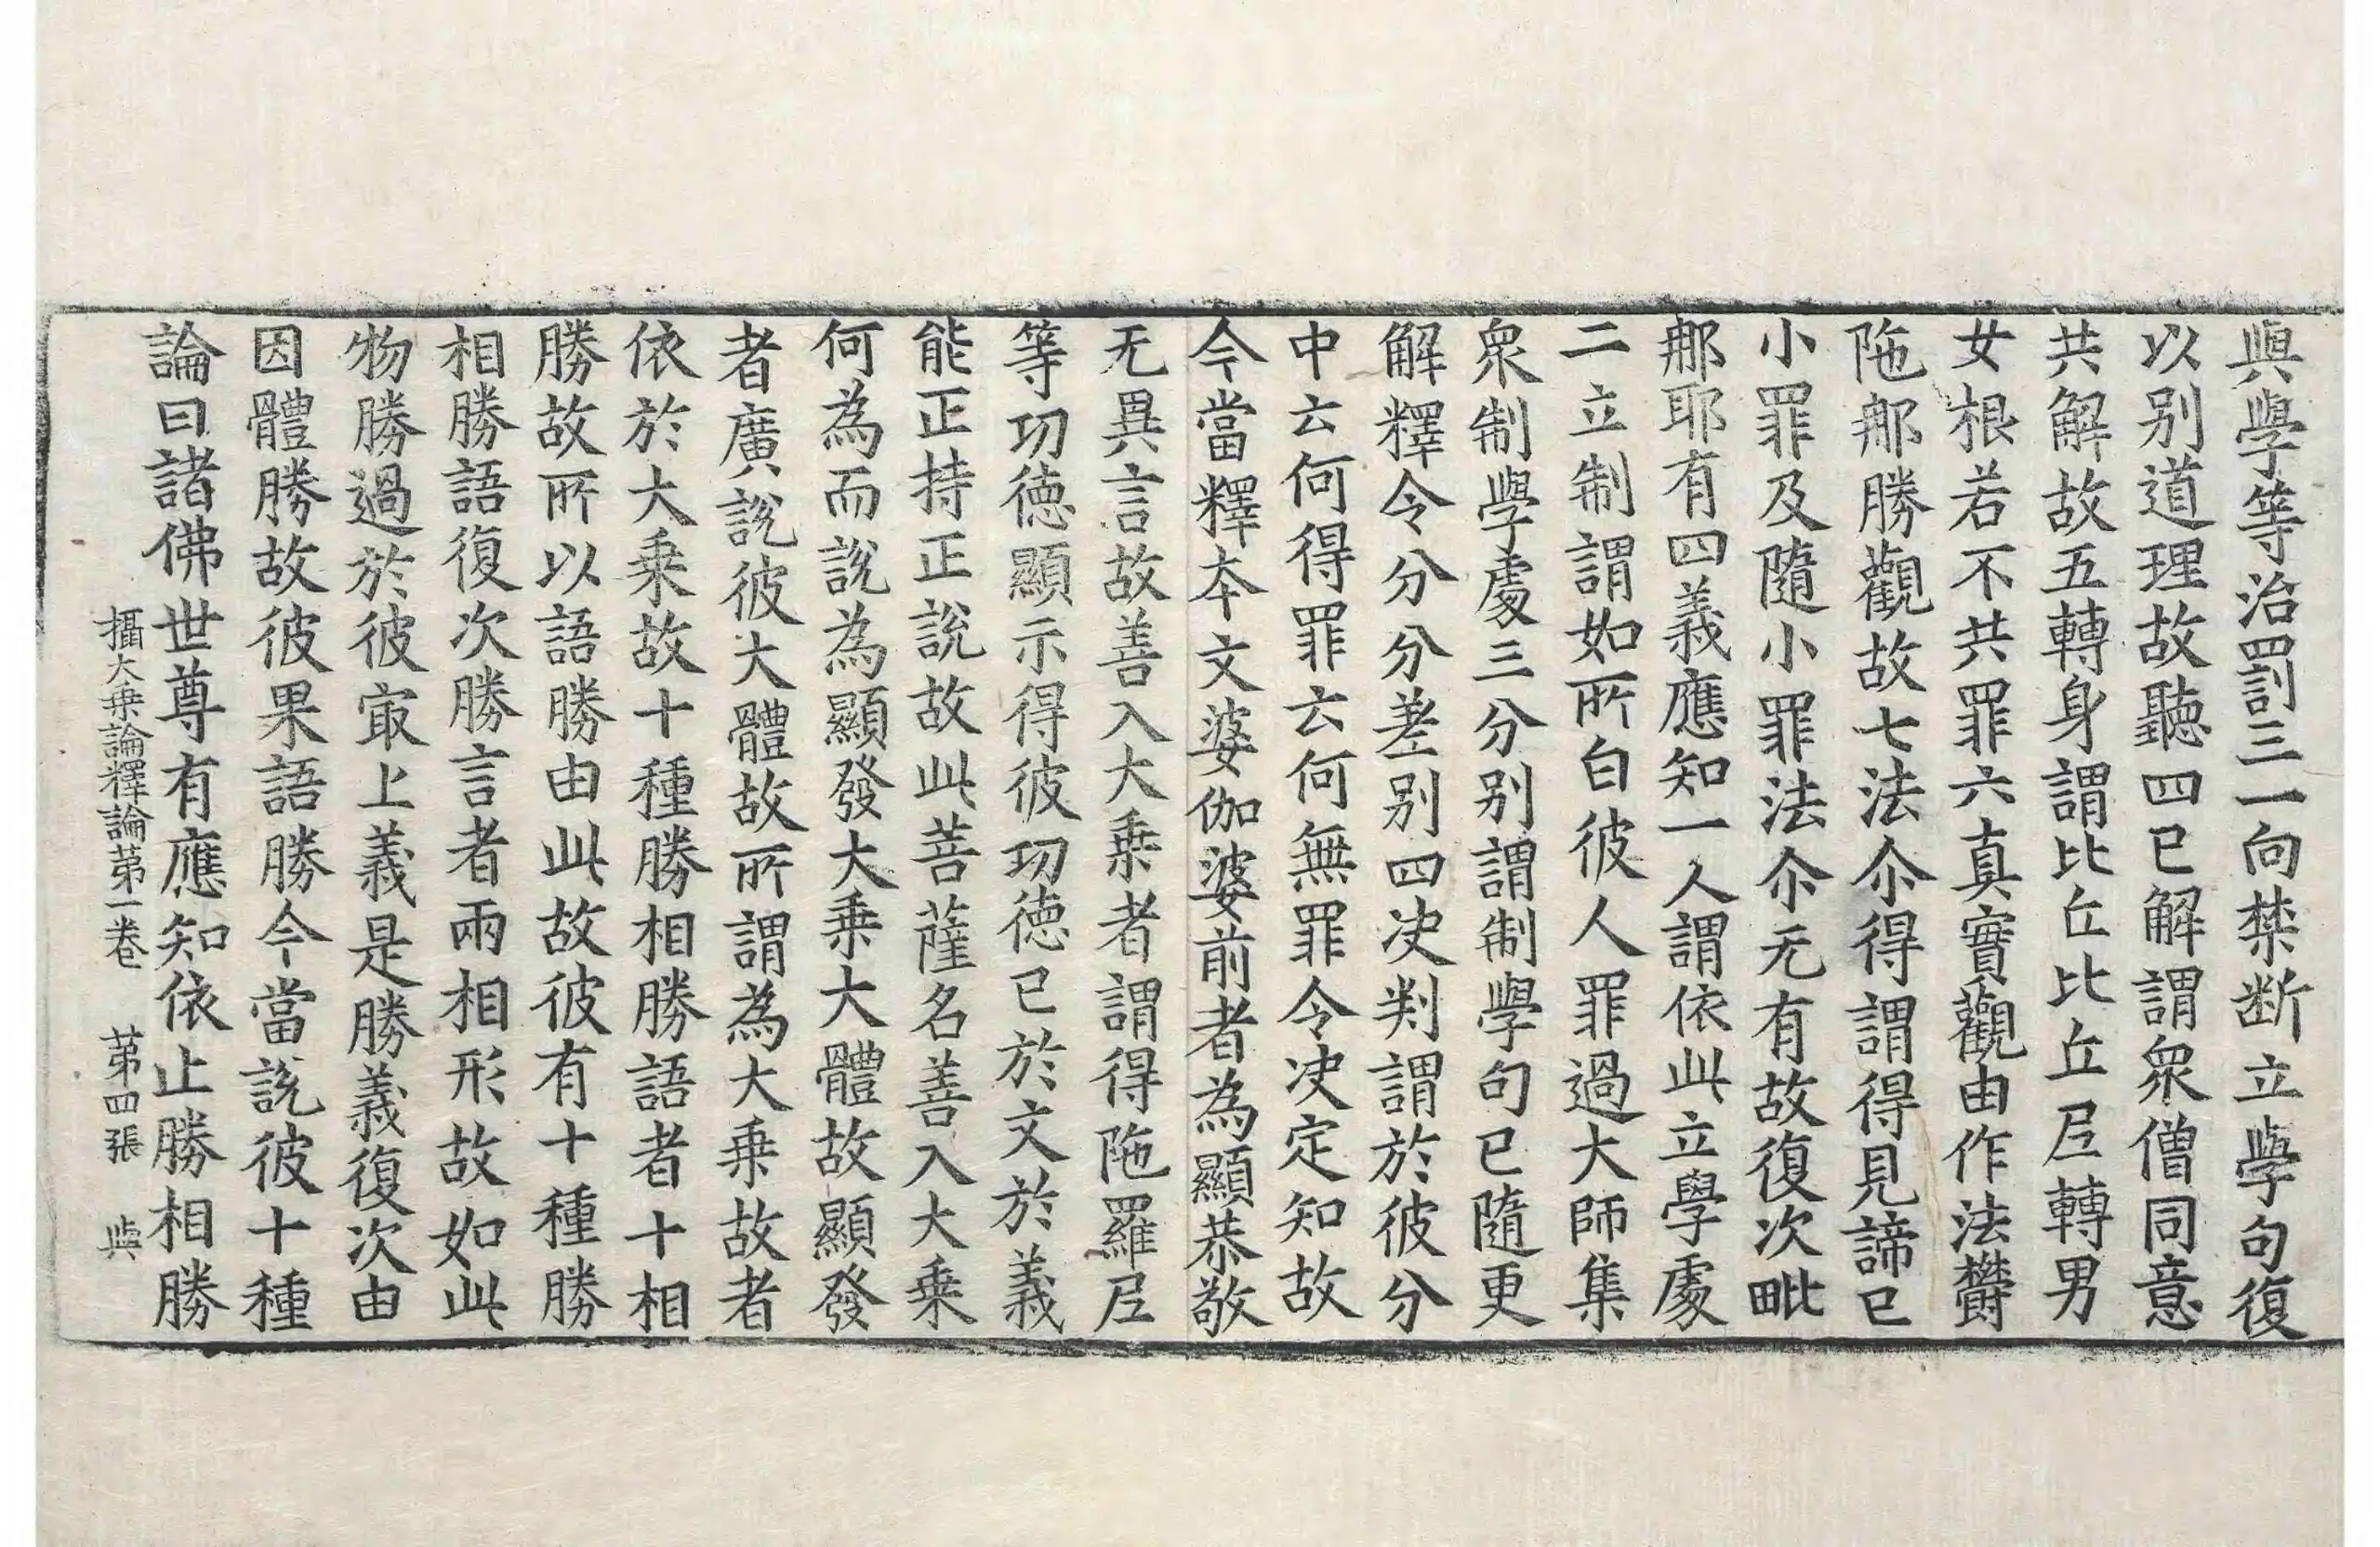 與學等治罰三一向禁断立學句復
以别道理故聽四已解謂衆僧同意
共解故五轉身謂比丘比丘尼轉男
女根若不共罪六真實觀由作法欝
陁𨙻勝觀故七法尒得謂得見諦已
小罪及隨小罪法尒无有故復次毗
𨙻耶有四義應知一人謂依此立學處
二立制謂如所白彼人罪過大師集
衆制學處三分别謂制學句已隨更
解釋令分分差别四决判謂於彼分
中云何得罪云何無罪令决定知故
今當釋本文婆伽婆前者為顯恭敬
无異言故善入大乗者謂得陁羅尼
等功德顯示得彼功德已於文於義
能正持正說故此菩薩名善入大乗
何為而說為顯發大乗大體故顯發
者廣說彼大體故所謂為大乗故者
依於大乗故十種勝相勝語者十相
勝故所以語勝由此故彼有十種勝
相勝語復次勝言者兩相形故如此
物勝過於彼㝡上義是勝義復次由
因體勝故彼果語勝今當說彼十種
論曰諸佛世尊有應知依止勝相勝
攝大乗論釋論苐一卷 苐四張 與